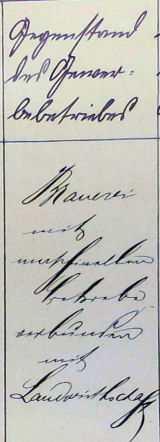 Gegenstand
des Gewer-
bebetriebes
Brauerei
mit
maschinellem
Betriebe
verbunden
mit
Landwirthschaft